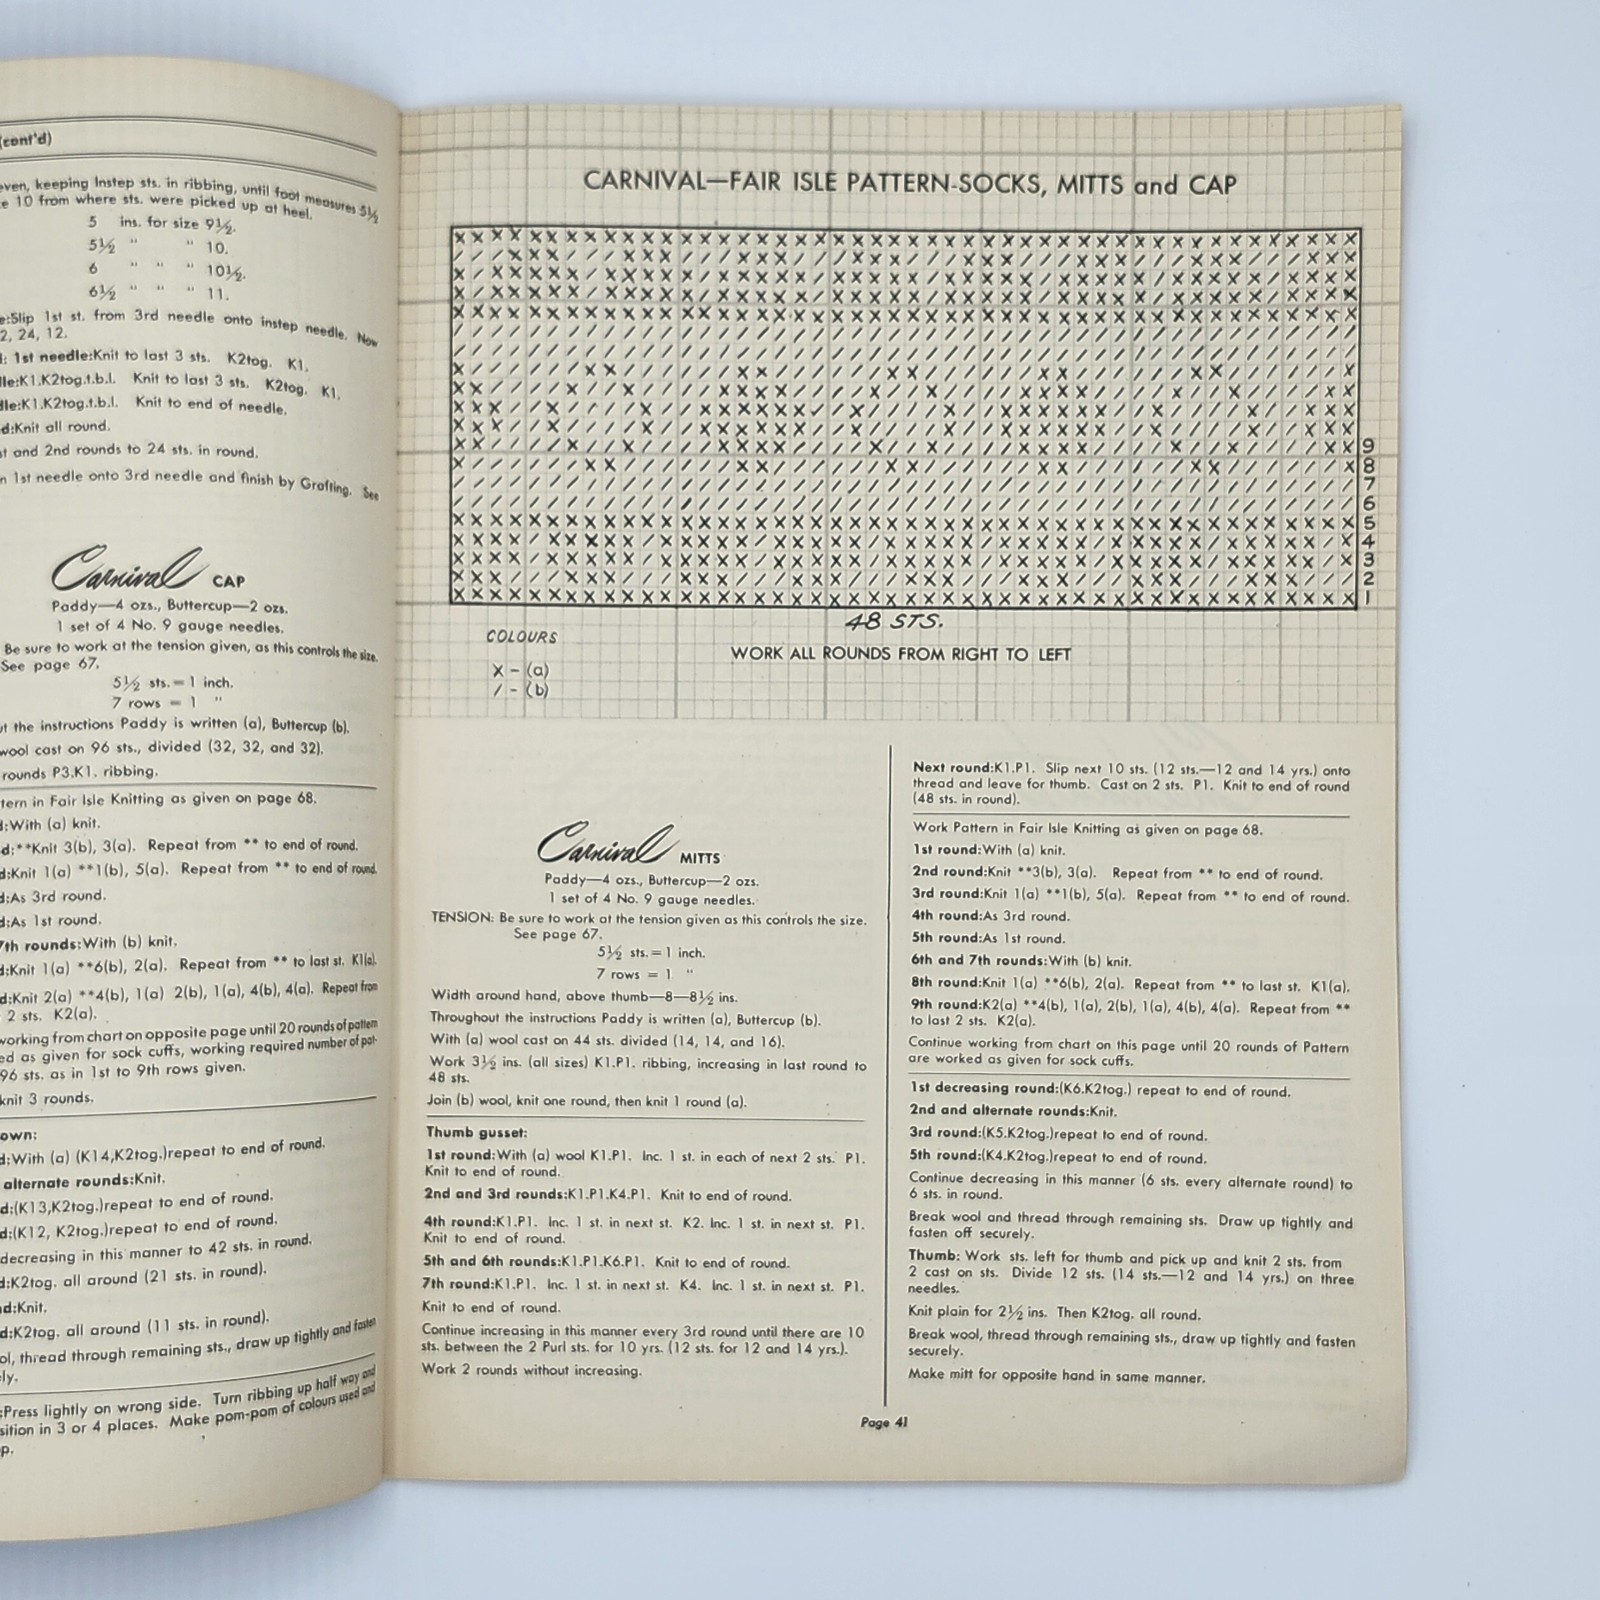 (cont'd)
even, keeping Instep sts. in ribbing, until foot measures 5½
10 from where sts. were picked up at heel.
5 ins. for size 9½.
5½ " " 10.
6 " " " 10½.
6½ " " " 11.
Slip 1st st. from 3rd needle onto instep needle. Now
2, 24, 12.
1st needle:Knit to last 3 sts. K2tog. K1.
K1.K2tog.t.b.l. Knit to last 3 sts. K2tog. K1.
K1.K2tog.t.b.l. Knit to end of needle.
Knit all round.
and 2nd rounds to 24 sts. in round.
1st needle onto 3rd needle and finish by Grafting. See
Carnival CAP
Paddy—4 ozs., Buttercup—2 ozs.
1 set of 4 No. 9 gauge needles.
Be sure to work at the tension given, as this controls the size.
See page 67.
5½ sts. = 1 inch.
7 rows = 1 "
the instructions Paddy is written (a), Buttercup (b).
wool cast on 96 sts., divided (32, 32, and 32).
rounds P3.K1. ribbing.
in Fair Isle Knitting as given on page 68.
With (a) knit.
**Knit 3(b), 3(a). Repeat from ** to end of round.
Knit 1(a) **1(b), 5(a). Repeat from ** to end of round.
As 3rd round.
As 1st round.
7th rounds:With (b) knit.
Knit 1(a) **6(b), 2(a). Repeat from ** to last st. K1(a).
Knit 2(a) **4(b), 1(a) 2(b), 1(a), 4(b), 4(a). Repeat from
2 sts. K2(a).
working from chart on opposite page until 20 rounds of pattern
as given for sock cuffs, working required number of pat-
96 sts. as in 1st to 9th rows given.
knit 3 rounds.
With (a) (K14,K2tog.)repeat to end of round.
alternate rounds:Knit.
(K13,K2tog.)repeat to end of round.
(K12, K2tog.)repeat to end of round.
decreasing in this manner to 42 sts. in round.
K2tog. all around (21 sts. in round).
Knit.
K2tog. all around (11 sts. in round).
thread through remaining sts., draw up tightly and fasten
Press lightly on wrong side. Turn ribbing up half way and
in 3 or 4 places. Make pom-pom of colours used and
CARNIVAL—FAIR ISLE PATTERN-SOCKS, MITTS and CAP
9
8
7
6
5
4
3
2
1
48 STS.
COLOURS
X - (a)
/ - (b)
WORK ALL ROUNDS FROM RIGHT TO LEFT
Carnival MITTS
Paddy—4 ozs., Buttercup—2 ozs.
1 set of 4 No. 9 gauge needles.
TENSION: Be sure to work at the tension given as this controls the size.
See page 67.
5½ sts. = 1 inch.
7 rows = 1 "
Width around hand, above thumb—8—8½ ins.
Throughout the instructions Paddy is written (a), Buttercup (b).
With (a) wool cast on 44 sts. divided (14, 14, and 16).
Work 3½ ins. (all sizes) K1.P1. ribbing, increasing in last round to
48 sts.
Join (b) wool, knit one round, then knit 1 round (a).
Thumb gusset:
1st round:With (a) wool K1.P1. Inc. 1 st. in each of next 2 sts. P1.
Knit to end of round.
2nd and 3rd rounds:K1.P1.K4.P1. Knit to end of round.
4th round:K1.P1. Inc. 1 st. in next st. K2. Inc. 1 st. in next st. P1.
Knit to end of round.
5th and 6th rounds:K1.P1.K6.P1. Knit to end of round.
7th round:K1.P1. Inc. 1 st. in next st. K4. Inc. 1 st. in next st. P1.
Knit to end of round.
Continue increasing in this manner every 3rd round until there are 10
sts. between the 2 Purl sts. for 10 yrs. (12 sts. for 12 and 14 yrs.).
Work 2 rounds without increasing.
Next round:K1.P1. Slip next 10 sts. (12 sts.—12 and 14 yrs.) onto
thread and leave for thumb. Cast on 2 sts. P1. Knit to end of round
(48 sts. in round).
Work Pattern in Fair Isle Knitting as given on page 68.
1st round:With (a) knit.
2nd round:Knit **3(b), 3(a). Repeat from ** to end of round.
3rd round:Knit 1(a) **1(b), 5(a). Repeat from ** to end of round.
4th round:As 3rd round.
5th round:As 1st round.
6th and 7th rounds:With (b) knit.
8th round:Knit 1(a) **6(b), 2(a). Repeat from ** to last st. K1(a).
9th round:K2(a) **4(b), 1(a), 2(b), 1(a), 4(b), 4(a). Repeat from **
to last 2 sts. K2(a).
Continue working from chart on this page until 20 rounds of Pattern
are worked as given for sock cuffs.
1st decreasing round:(K6.K2tog.) repeat to end of round.
2nd and alternate rounds:Knit.
3rd round:(K5.K2tog.)repeat to end of round.
5th round:(K4.K2tog.)repeat to end of round.
Continue decreasing in this manner (6 sts. every alternate round) to
6 sts. in round.
Break wool and thread through remaining sts. Draw up tightly and
fasten off securely.
Thumb: Work sts. left for thumb and pick up and knit 2 sts. from
2 cast on sts. Divide 12 sts. (14 sts.—12 and 14 yrs.) on three
needles.
Knit plain for 2½ ins. Then K2tog. all round.
Break wool, thread through remaining sts., draw up tightly and fasten
securely.
Make mitt for opposite hand in same manner.
Page 41